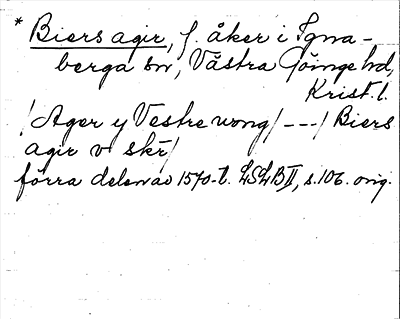 * Biers agir, f. åker i Igna-
berga sn, Västra Göinge hd,
Krist. l.
/ Ager y Vestre wong / --- / Biers
agir v skr /
förra delen av 1570-t. LSLB II, s. 106. orig.